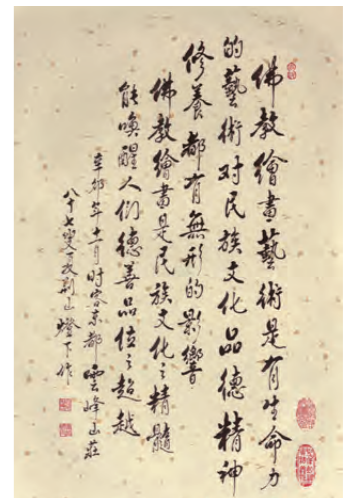 佛教繪畫藝術是有生命力
的藝術对民族文化品德精神
修養都有無形的影響
佛教繪畫是民族文化之精髓
能喚醒人们德善品位之超越
辛卯年十一月时客京都雲峰山莊
八十七叟夏荆山燈下作